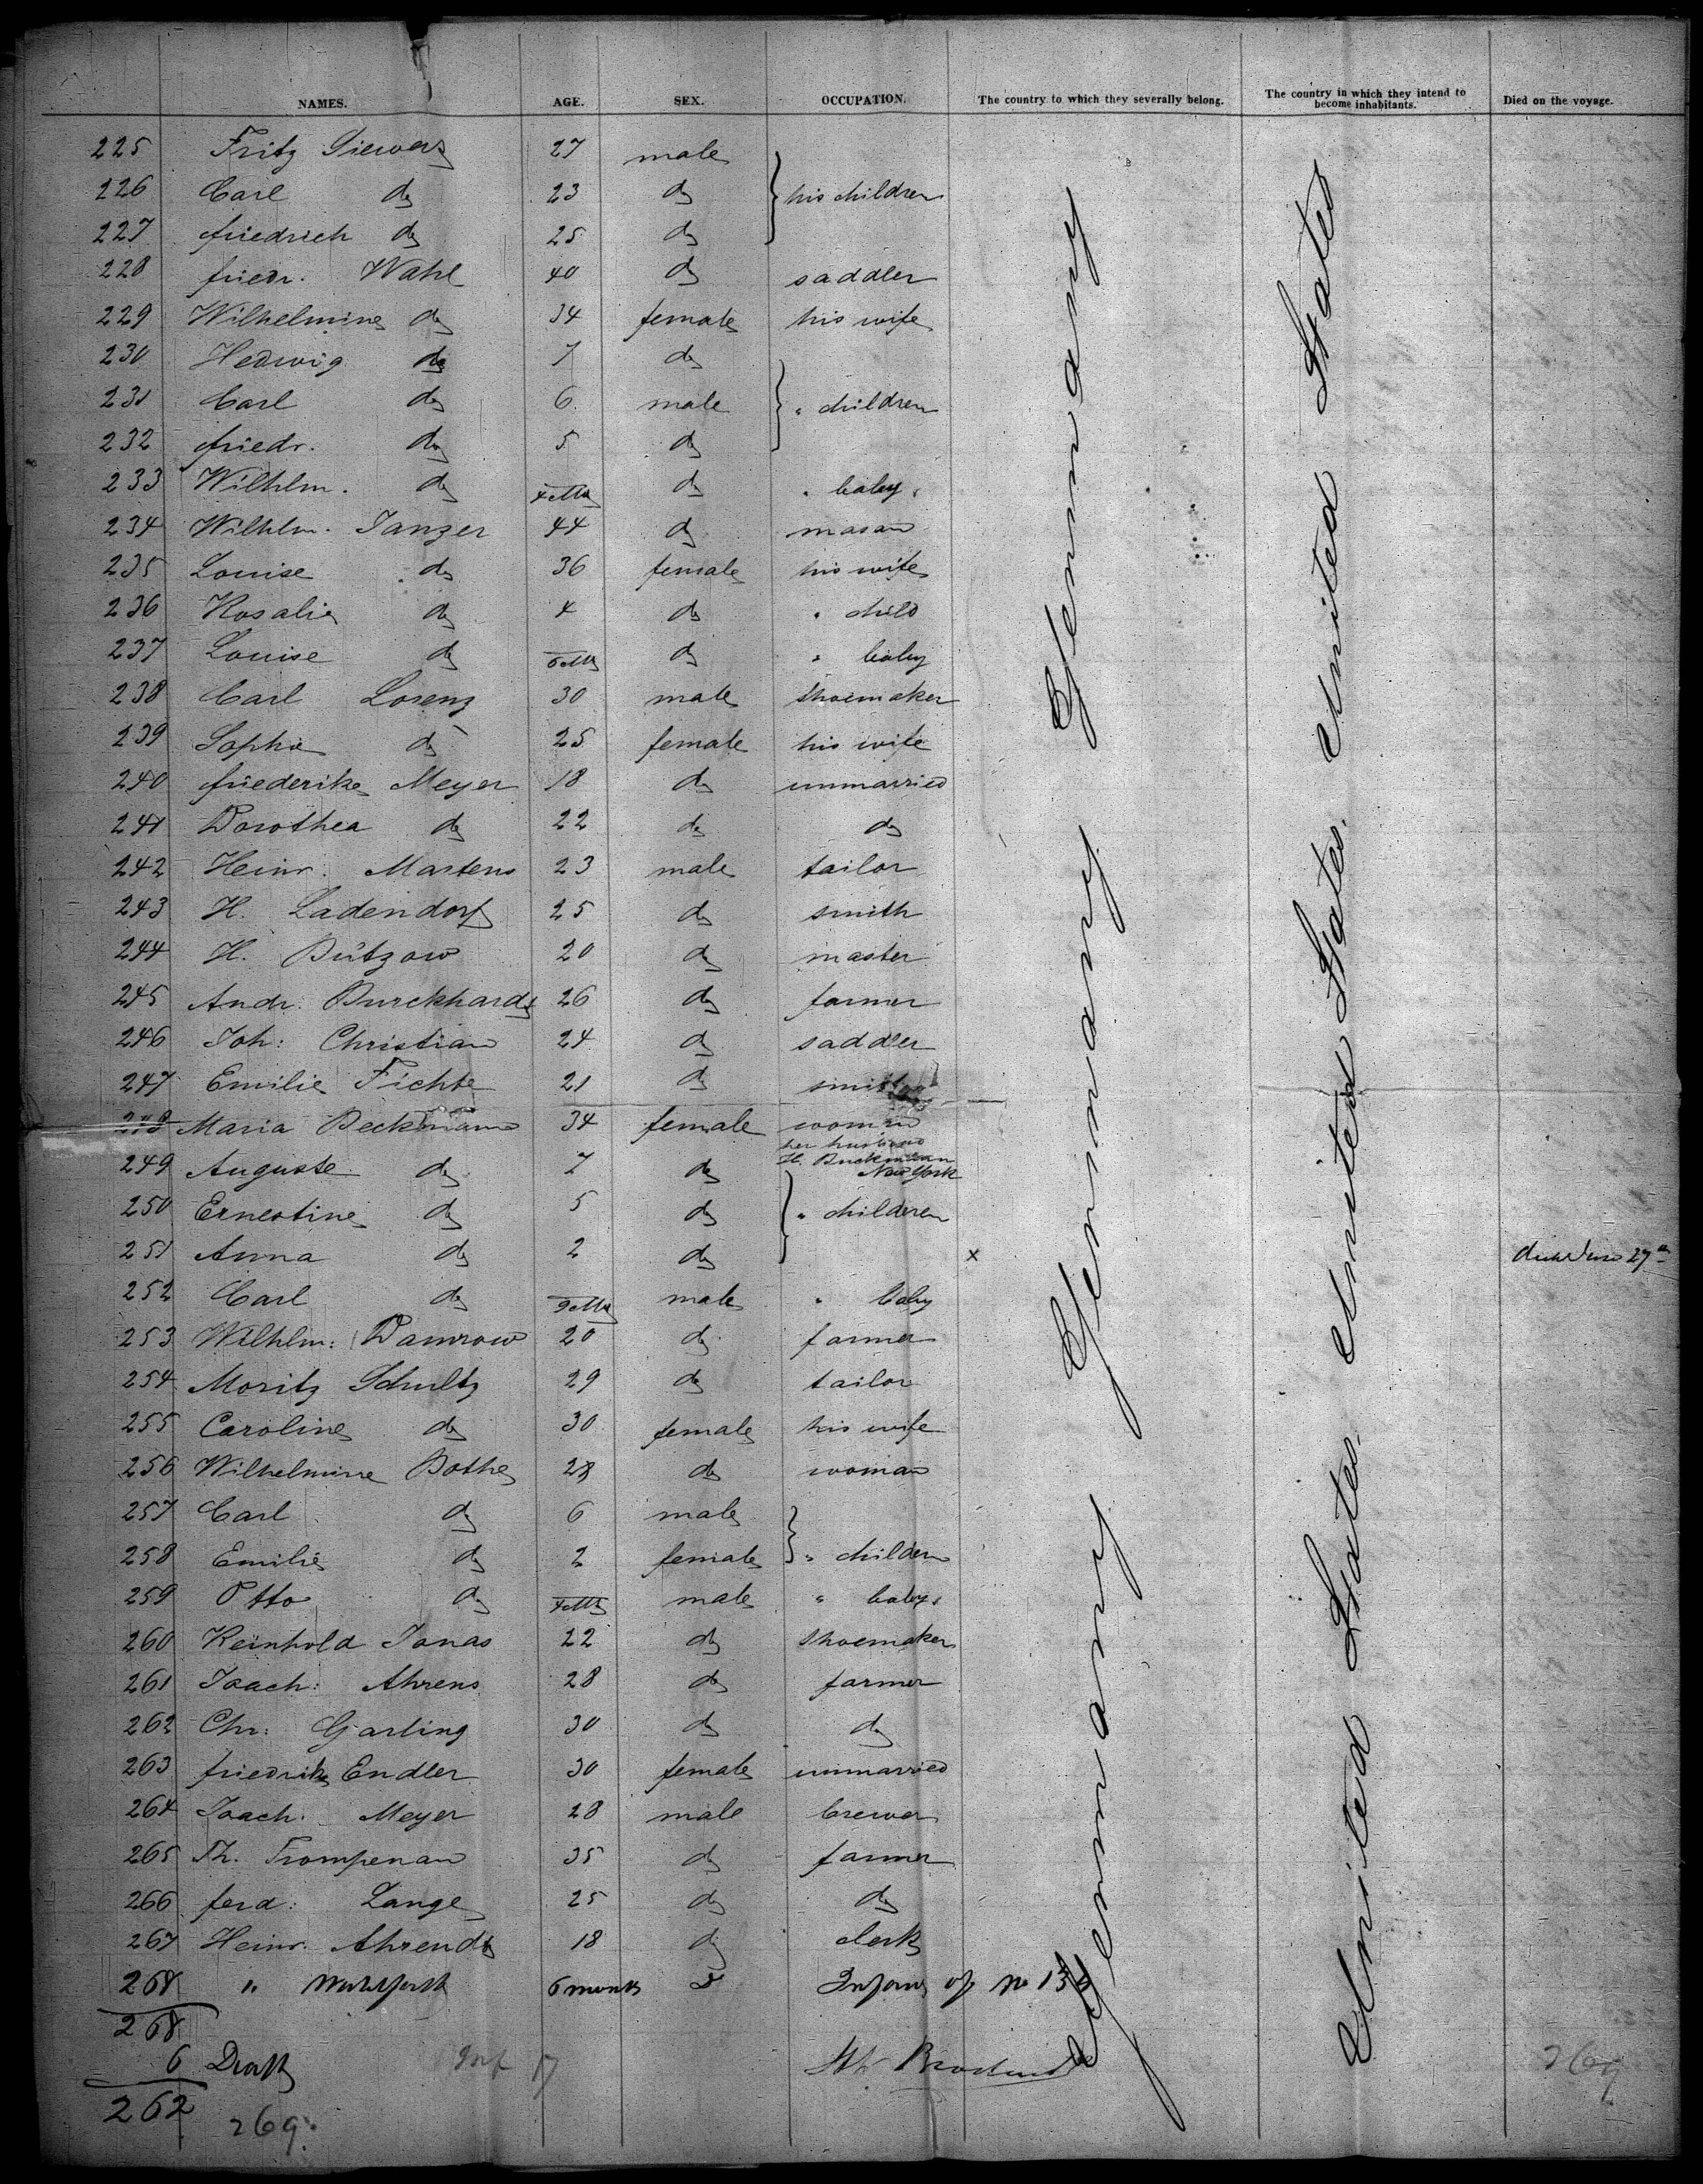 NAMES. AGE. SEX. OCCUPATION. The country to which they severally belong. The country in which they intend to become inhabitants. Died on the voyage.
225 Fritz Siewers 27 male
226 Carl do 23 do his children
227 friedrich do 25 do
228 friedr. Wahl 40 do saddler
229 Wilhelmine do 34 female his wife
230 Hedwig do 7 do
231 Carl do 6 male " children
232 friedr. do 5 do
233 Wilhlm. do 4 Mts do " baby
234 Wilhlm. Janzer 44 do mason
235 Louise do 36 female his wife
236 Rosalie do 4 do " child
237 Louise do 6 Mts do " baby
238 Carl Lorenz 30 male shoemaker
239 Sophie do 25 female his wife
240 friederike Meyer 18 do unmarried
241 Dorothea do 22 do do
242 Heinr. Martens 23 male tailor
243 H. Ladendorf 25 do smith
244 H. Bützow 20 do master
245 Andr. Burckhardt 26 do farmer
246 Joh: Christian 24 do saddler
247 Emilie Fichte 21 do smith
248 Maria Beckmann 34 female woman
her husband
H. Buckmann
New York
249 Auguste do 7 do
250 Ernestine do 5 do " childeren
251 Anna do 2 do x died June 27th
252 Carl do 9 Mts male " baby
253 Wilhlm: Damrow 20 do farmer
254 Moritz Schultz 29 do tailor
255 Caroline do 30 female his wife
256 Wilhelmine Bothe 28 do woman
257 Carl do 6 male
258 Emilie do 2 female " children
259 Otto do 4 Mts male " baby
260 Reinhold Jonas 22 do shoemaker
261 Joach: Ahrens 28 do farmer
262 Chr: Garling 30 do do
263 friedrike Endler 30 female unmarried
264 Joach. Meyer 28 male brewer
265 Th. Trompenau 35 do farmer
266 ferd: Lange 25 do do
267 Heinr. Ahrendt 18 do clerk
268 " 6 month do Infant of No 13
Germany Germany Germany
United States United States. United States.
268
6 Death Inf 17
262
269.
269